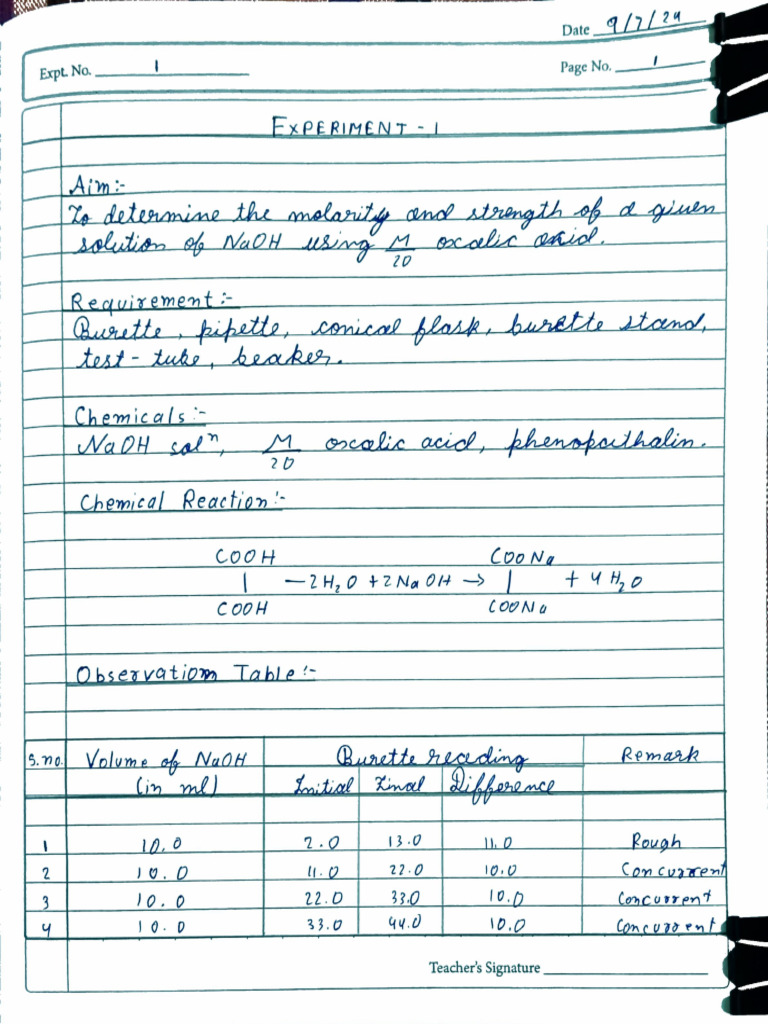 Date 9/7/24
Expt. No. 1
Page No. 1
EXPERIMENT - 1
Aim:-
To determine the molarity and strength of a given
solution of NaOH using M/20 oxcalic acid.
Requirement:-
Burette, pipette, conical flask, burette stand,
test-tube, beaker.
Chemicals:-
NaOH solⁿ, M/20 oxcalic acid, phenopathalin.
Chemical Reaction:-
COOH COONa
| —2H₂O + 2NaOH → | + 4H₂O
COOH COONa
Observation Table:-
S.no. Volume of NaOH Burette reading Remark
(in ml) Initial Final Difference
1 10.0 2.0 13.0 11.0 Rough
2 10.0 11.0 22.0 10.0 Concurrent
3 10.0 22.0 33.0 10.0 Concurrent
4 10.0 33.0 44.0 10.0 Concurrent
Teacher's Signature